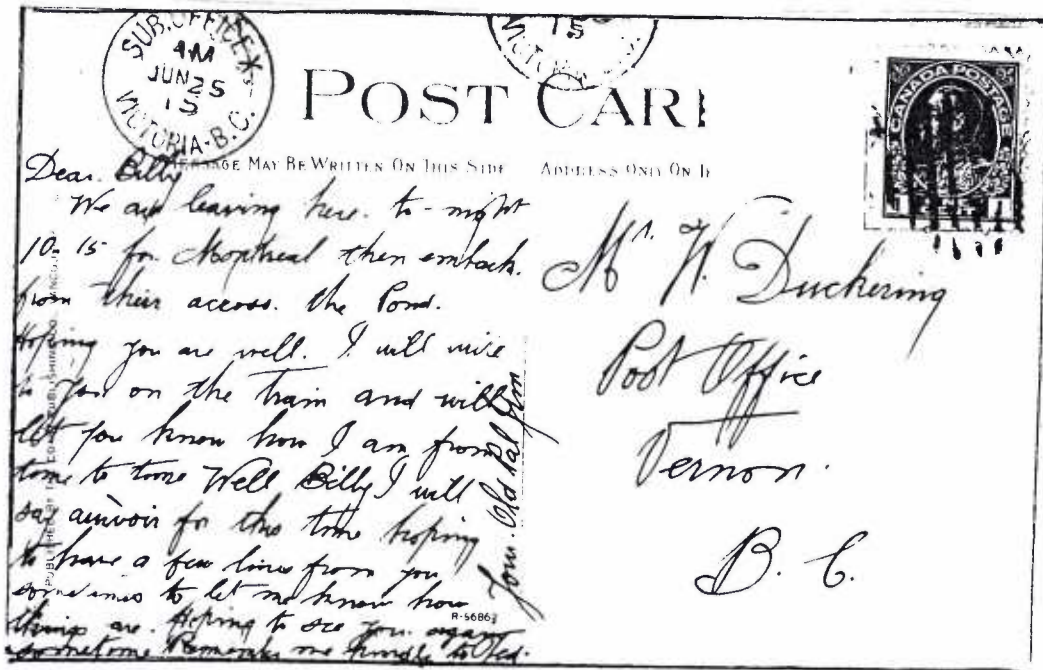 SUB. OFFICE
AM
JUN 25
15
VICTORIA-B.C.
15
POST CAR
MESSAGE MAY BE WRITTEN ON THIS SIDE
ADDRESS ONLY ON
CANADA POSTAGE
Dear. Billy
We are leaving here. to-night
10-15 for Montreal then embark.
from their across. the Pond.
Hoping you are well. I will wire
to you on the train and will
let you know how I am from
time to time Well Billy I will
say auivoir for this time hoping
to have a few lines from you
sometimes to let me know how
things are. Hoping to see you again
sometime Remember me kindly to Ted.
Your. Old Pal Jim
R-56863
Mr. W. Duckering
Post Office
Vernon.
B. C.